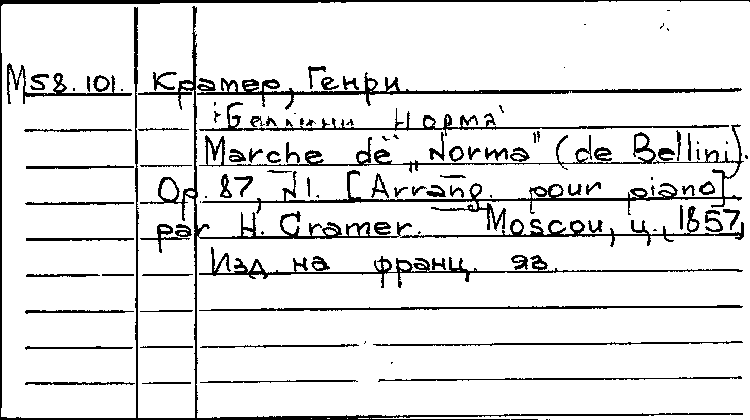 М58.101. Крамер, Генри.
[Беллини Норма]
Marche de „Norma" (de Bellini).
Op. 87, N1. [Arrang. pour piano]
par H. Cramer. Moscou, ц., 1857,
Изд. на франц. яз.